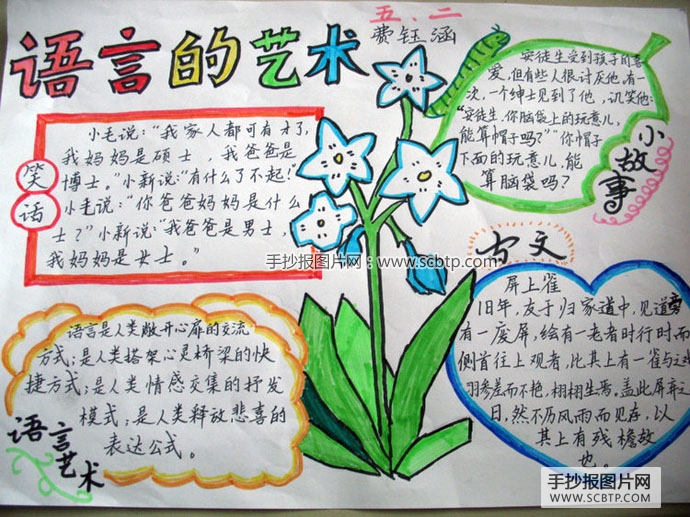 语言的艺术
五、二
费钰涵
笑话
小毛说：“我家人都可有才了，
我妈妈是硕士，我爸爸是
博士。”小新说：“有什么了不起！”
小毛说：“你爸爸妈妈是什么
士？”小新说：“我爸爸是男士，
我妈妈是女士。”
安徒生受到孩子们的喜
爱，但有些人很讨厌他，有一
次，一个绅士见到了他，讥笑他：
“安徒生，你脑袋上的玩意儿，
能算帽子吗？”“你帽子
下面的玩意儿，能
算脑袋吗？
小故事
手抄报图片网：www.scbtp.com
古文
屏上雀
旧年，友于归家道中，见道旁
有一废屏，绘有一老者时行时而
侧首往上观者，比其上有一雀与
羽参差而不艳，栩栩生焉。盖此屏弃之
日，然不历风雨而见存，以
其上有残檐故
也。
语言是人类敞开心扉的交流
方式；是人类搭架心灵桥梁的快
捷方式；是人类情感交集的抒发
模式；是人类释放悲喜的
表达公式。
语言艺术
手抄报图片网
WWW.SCBTP.COM